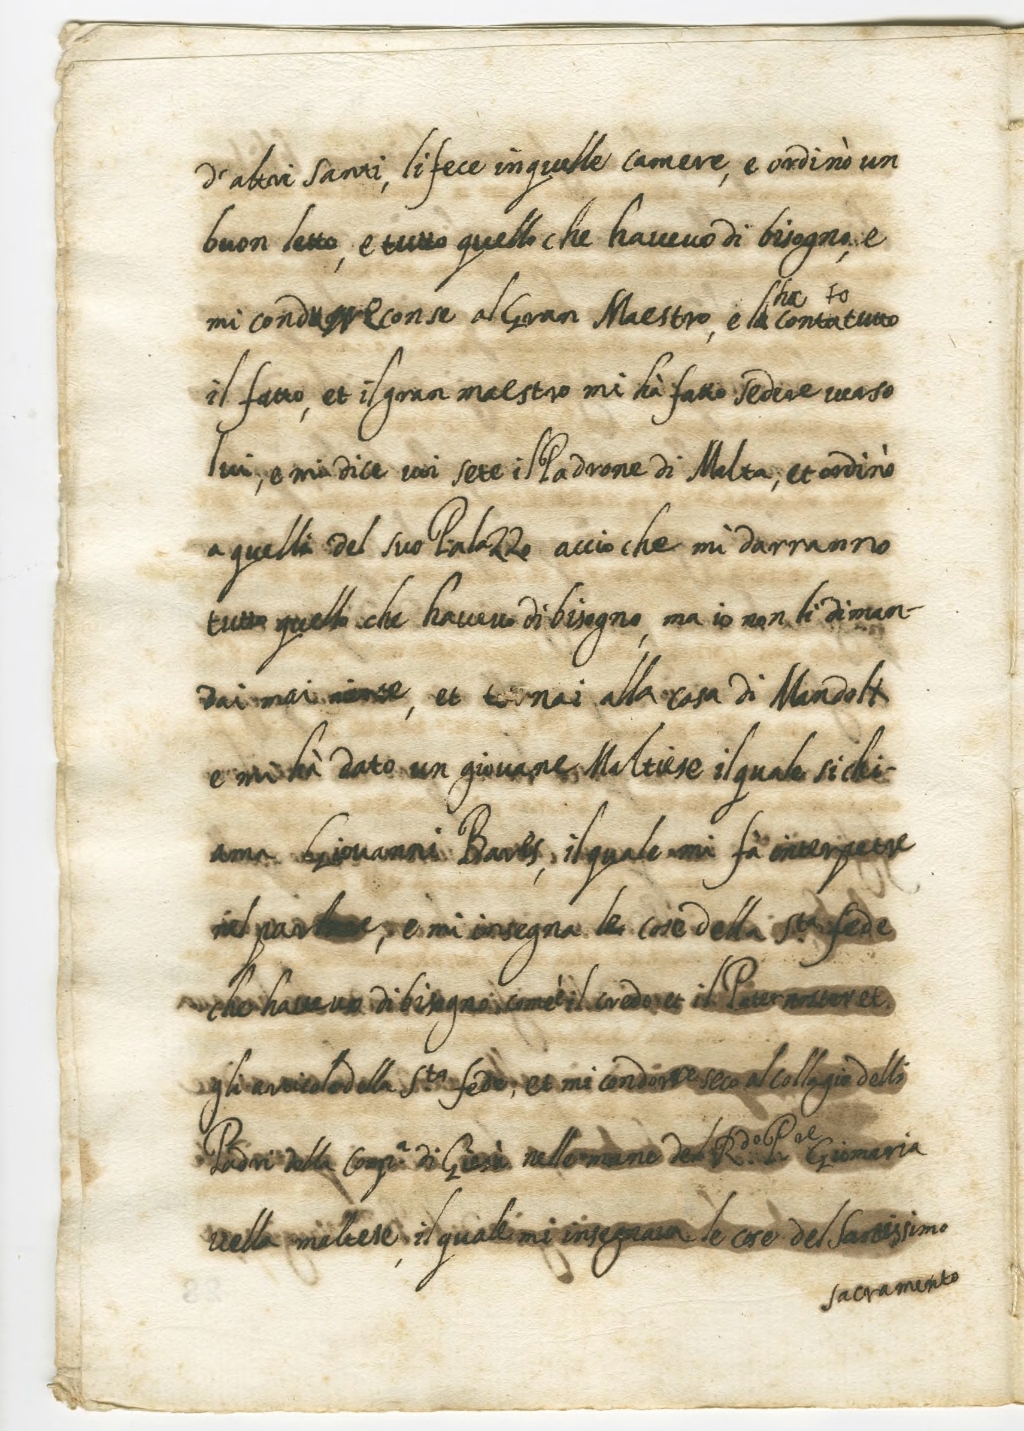 d'altri Santi, li fece in quelle camere, e ordinò un
buon letto, e tutto quello che havevo di bisogno, e
mi condusse con se al Gran Maestro, e l'ha contato tutto
il fatto, et il gran maestro mi hà fatto sedere verso
lui, e mi dice voi sete il Padrone di Malta, et ordinò
a quelli del suo Palazzo accio che mi darranno
tutto quello che havevo di bisogno, ma io non li diman-
dai mai niente, et tornai alla casa di Mandols
e mi hà dato un giovane Maltese il quale si chi-
ama Giovanni Bares, il quale mi fà interpetre
nel parlare, e mi insegna le cose della S.ta fede
che havevo di bisogno come il credo et il Pater noster et
gli articoli della S.ta fede, et mi condorre seco al collogio delli
Padri della Comp.a di Giesù nelle mane del R.do P.re Giomaria
vella maltese, il quale mi insegnava le cose del Santissimo
sacramento